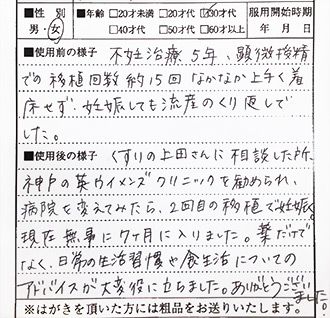 ■性別 ■年齢 □20才未満 □20才代 ☑30才代 服用開始時期
男・女 □40才代 □50才代 □60才以上 年 月 日
■使用前の様子 不妊治療5年、顕微授精
での移植回数約15回 なかなか上手く着
床せず、妊娠しても流産のくり返しで
した。
■使用後の様子 くすりの上田さんに相談した所、
神戸の英ウイメンズクリニックを勧められ、
病院を変えてみたら、2回目の移植で妊娠。
現在無事に7ヶ月に入りました。薬だけで
なく、日常の生活習慣や食生活についての
アドバイスが大変役に立ちました。ありがとうござい
ました。
※はがきを頂いた方には粗品をお送りいたします。